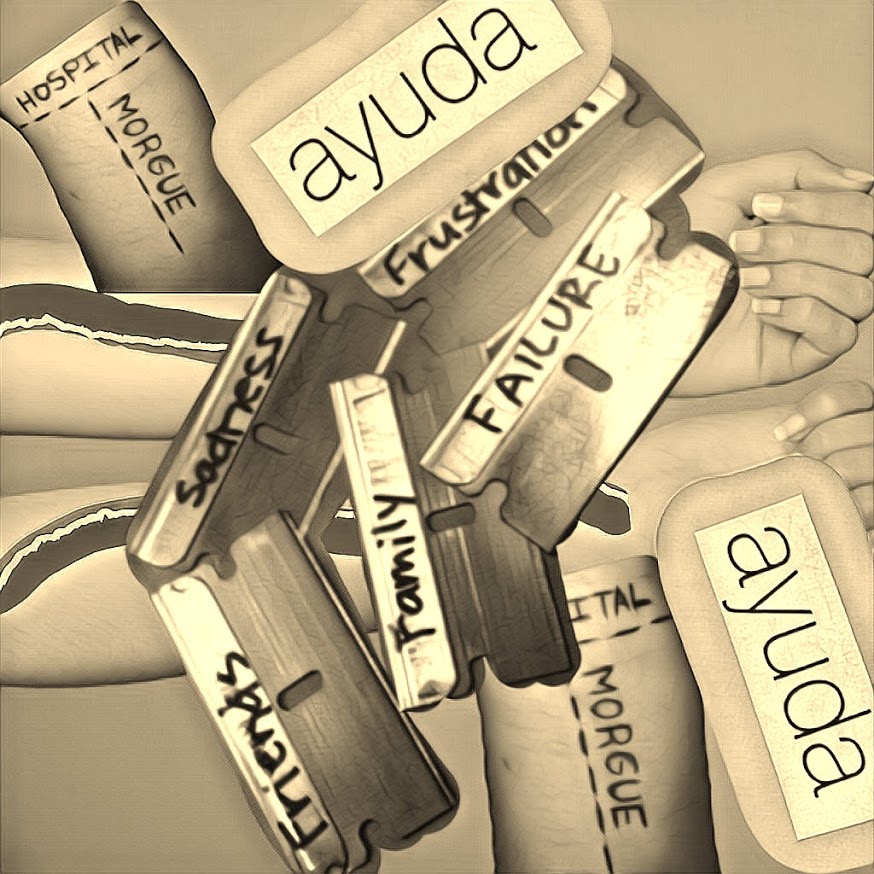 HOSPITAL
MORGUE
ayuda
Frustration
FAILURE
sadness
Family
Friends
ITAL
MORGUE
ayuda